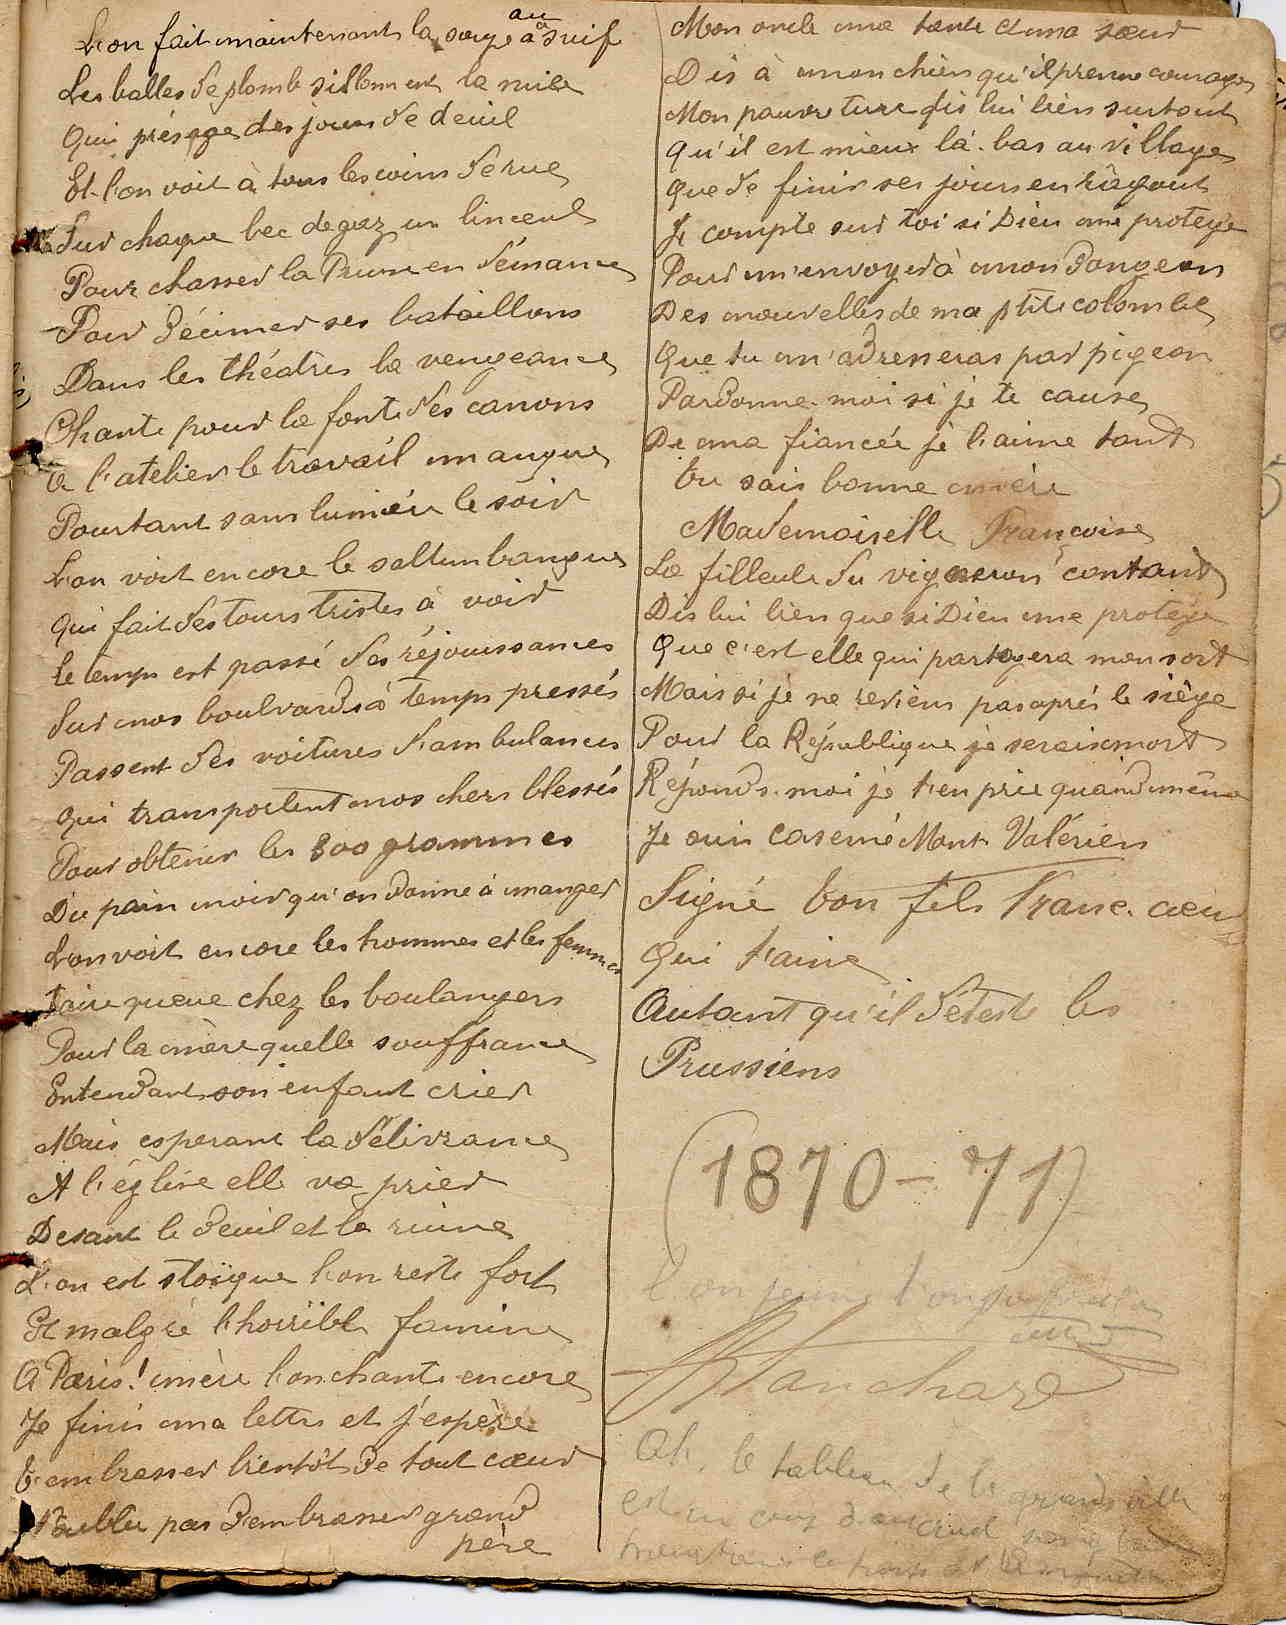 L'on fait maintenant la soupe au suif
Les balles de plomb sillonnent la nue
Qui présage des jours de deuil
Et l'on voit à tous les coins de rue
Sur chaque bec de gaz un linceul
Pour chasser la Prusse en démance
Pour décimer ses bataillons
Dans les théatres la vengeance
Chante pour la fonte des canons
A l'atelier le travail manque
Pourtant sans lumière le soir
L'on voit encore le saltimbanque
Qui fait des tours tristes à voir
le temps est passé des réjouissances
Sur nos boulvards à temps pressés
Passent des voitures d'ambulances
Qui transportent nos chers blessés
Pour obtenir les 300 grammes
Du pain noir qu'on donne à manger
L'on voit encore les hommes et les femmes
Faire queue chez les boulangers
Pour la mère quelle souffrance
Entendant son enfant crier
Mais esperant la délivrance
A l'église elle va prier
Devant le deuil et la ruine
L'on est stoïque l'on reste fort
Et malgré l'horrible famine
A Paris! mère l'on chante encore
Je finis ma lettre et j'espère
T'embrasser bientôt de tout cœur
N'oublie pas d'embrasser grand
père
Mon oncle ma tante et ma sœur
Dis à mon chien qu'il prenne courage
Mon pauvre turc dis lui bien surtout
Qu'il est mieux là-bas au village
Que de finir ses jours en râgout
Je compte sur toi si Dieu me protege
Pour m'envoyer à mon dongeon
Des nouvelles de ma ptite colombe
Que tu m'adresseras par pigeon
Pardonne-moi si je te cause
De ma fiancée je l'aime tant
tu sais bonne mère
Mademoiselle Françoise
La filleule du vigneron contant
Dis lui bien que si Dieu me protège
Que c'est elle qui partagera mon sort
Mais si je ne reviens pas après le siège
Pour la République je serais mort
Réponds-moi je t'en prie quand même
Je suis caserné Mont Valérien
Signé ton fils Franc-cœur
Qui t'aime
Autant qu'il déteste les
Prussiens
(1870-71)
Blanchard
Oh, le tableau de la grande ville